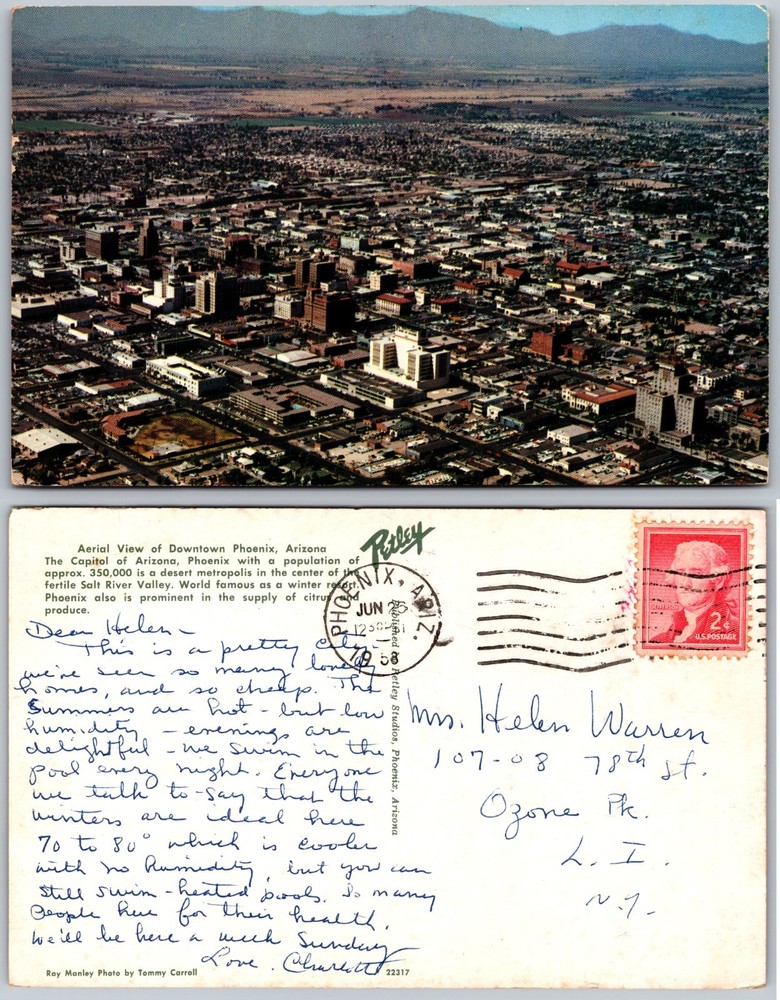 Aerial View of Downtown Phoenix, Arizona
The Capitol of Arizona, Phoenix with a population of
approx. 350,000 is a desert metropolis in the center of the
fertile Salt River Valley. World famous as a winter resort,
Phoenix also is prominent in the supply of citrus and
produce.
Petley
PHOENIX, ARIZ.
JUN 26
1230 PM
1958
JEFFERSON
2¢
U.S. POSTAGE
Dear Helen -
This is a pretty city
we've seen so many lovely
homes, and so cheap. The
Summers are hot - but low
humidity - evenings are
delightful - we swim in the
pool every night. Everyone
we talk to - say that the
winters are ideal here
70 to 80° which is cooler
with no humidity, but you can
still swim - heated pools. So many
People here for their health.
We'll be here a week Sunday
Love. Charlotte
Published by Petley Studios, Phoenix, Arizona
Mrs. Helen Warren
107-08 78th St.
Ozone Pk.
L. I.
N.Y.
Ray Manley Photo by Tommy Carroll
22317